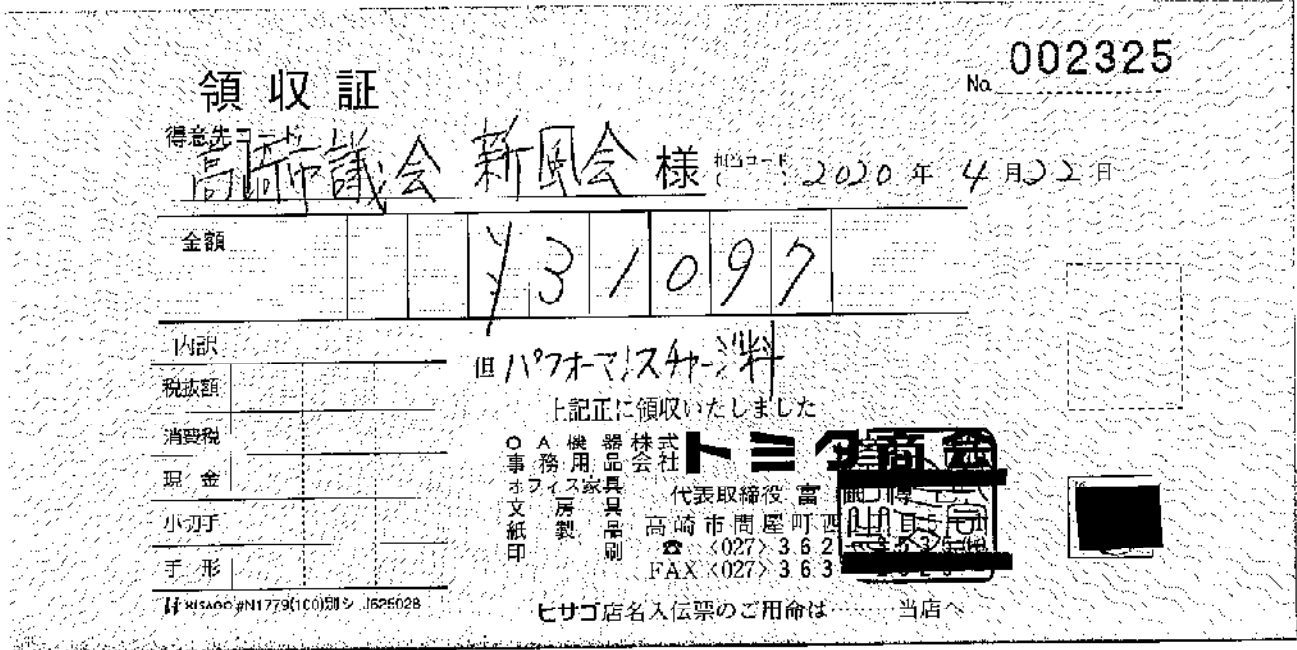 No. 002325
領収証
得意先コード
高崎市議会 新風会 様 担当コード ( ) 2020年 4月22日
金額 ¥31097
内訳
但 パフォーマンスチャージ料
税抜額
上記正に領収いたしました
消費税
現金
小切手
手形
OA機器
事務用品
オフィス家具
文房具
紙製品
印刷
株式会社 トミタ商会
代表取締役 富
高崎市問屋町西
☎ <027> 362
FAX <027> 363
HISAGO #N1779(100)別シ J625028
ヒサゴ店名入伝票のご用命は……当店へ